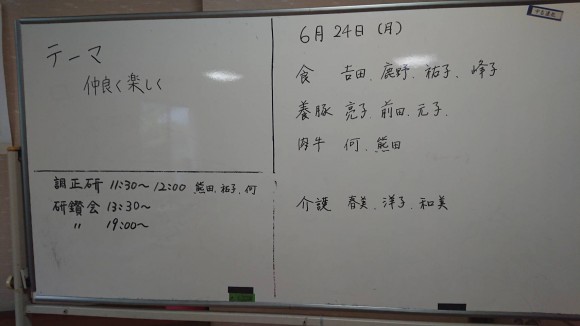 テーマ
仲良く楽しく
調正研 11:30～12:00 熊田、祐子、何
研鑽会 13:30～
〃 19:00～
6月24日(月)
食 吉田、鹿野、祐子、峰子
養豚 亮子、前田、元子、
肉牛 何、熊田
介護 春美、洋子、和美